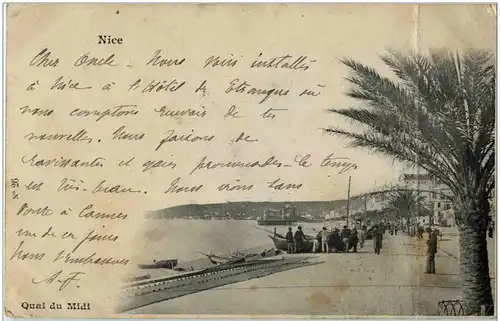 Nice
Cher Oncle - Nous voici installés
à Nice à l'Hôtel des Etrangers où
nous comptons recevoir de tes
nouvelles. Nous faisons de
ravissantes et gaies promenades - le temps
est très-beau. Nous irons sans
doute à Cannes
un de ces jours
Nous t'embrassons
A. F.
No 96
Quai du Midi